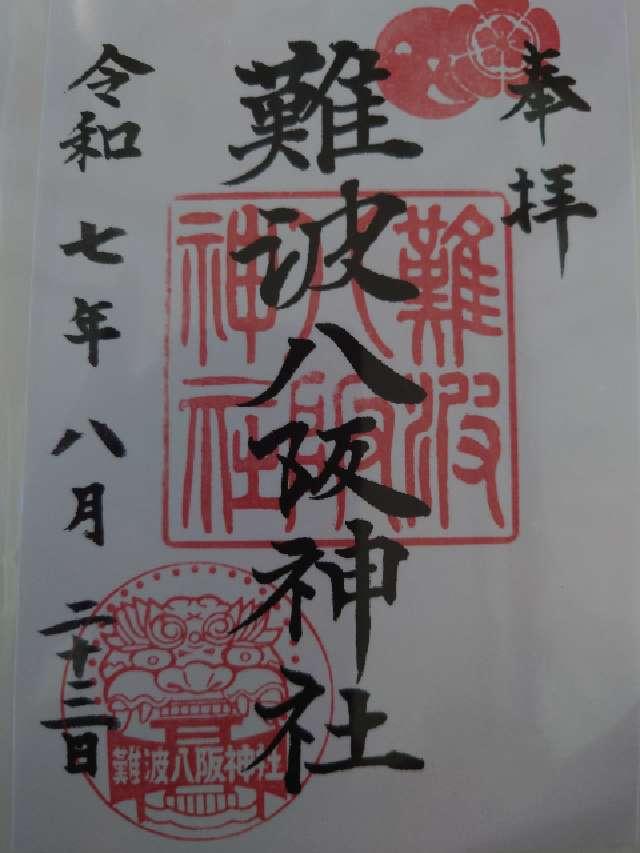 奉拝
難波八阪神社
難波八阪神社
令和七年八月二十三日
難波八阪神社